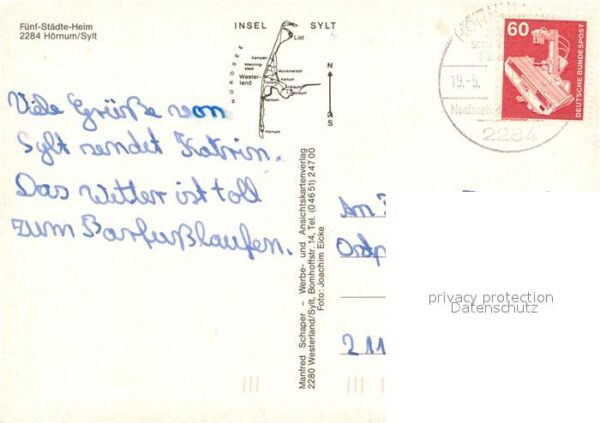 Fünf-Städte-Heim
2284 Hörnum/Sylt
INSEL SYLT
NORDSEE
List
Kampen
Wenning-
stedt
Munkmarsch
Wester-
land
Keitum
Archsum
Rantum
Hörnum
N
S
HÖRNUM
19.-5.
Nordsee
2284
60
DEUTSCHE BUNDESPOST
Viele Grüße von
Sylt sendet Katrin.
Das Wetter ist toll
zum Barfußlaufen.
Manfred Schaper – Werbe- und Ansichtskartenverlag
2280 Westerland/Sylt, Bomhoffstr. 14, Tel. (0 46 51) 2 47 00
Foto: Joachim Eicke
An
Ostp
211
privacy protection
Datenschutz